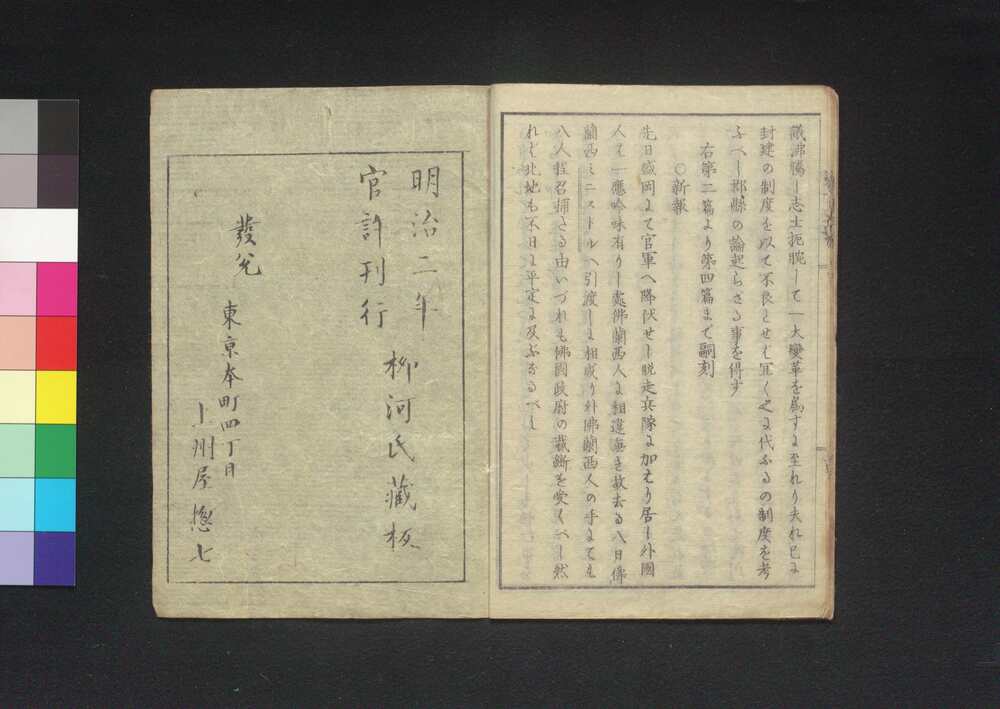 議沸騰し志士扼腕して一大變革を爲すに至れり夫れ已に
封建の制度を以て不良とせば宜く之に代ふるの制度を考
ふべし郡縣の論起らざる事を得ず
右第二篇より第四篇まで嗣刻
〇新報
先日盛岡にて官軍へ降伏せし脱走兵隊に加はり居し外國
人を一應吟味有りし處佛蘭西人に相違無き故去る八日佛
蘭西ミニストルへ引渡しに相成り外佛蘭西人の手にても
八人程召捕さる由いづれも佛國政府の裁斷を受くべし然
れば北地も不日に平定に及ぶなるべし
明治二年
官許刊行
柳河氏藏板
發兌
東京本町四丁目
上州屋惣七